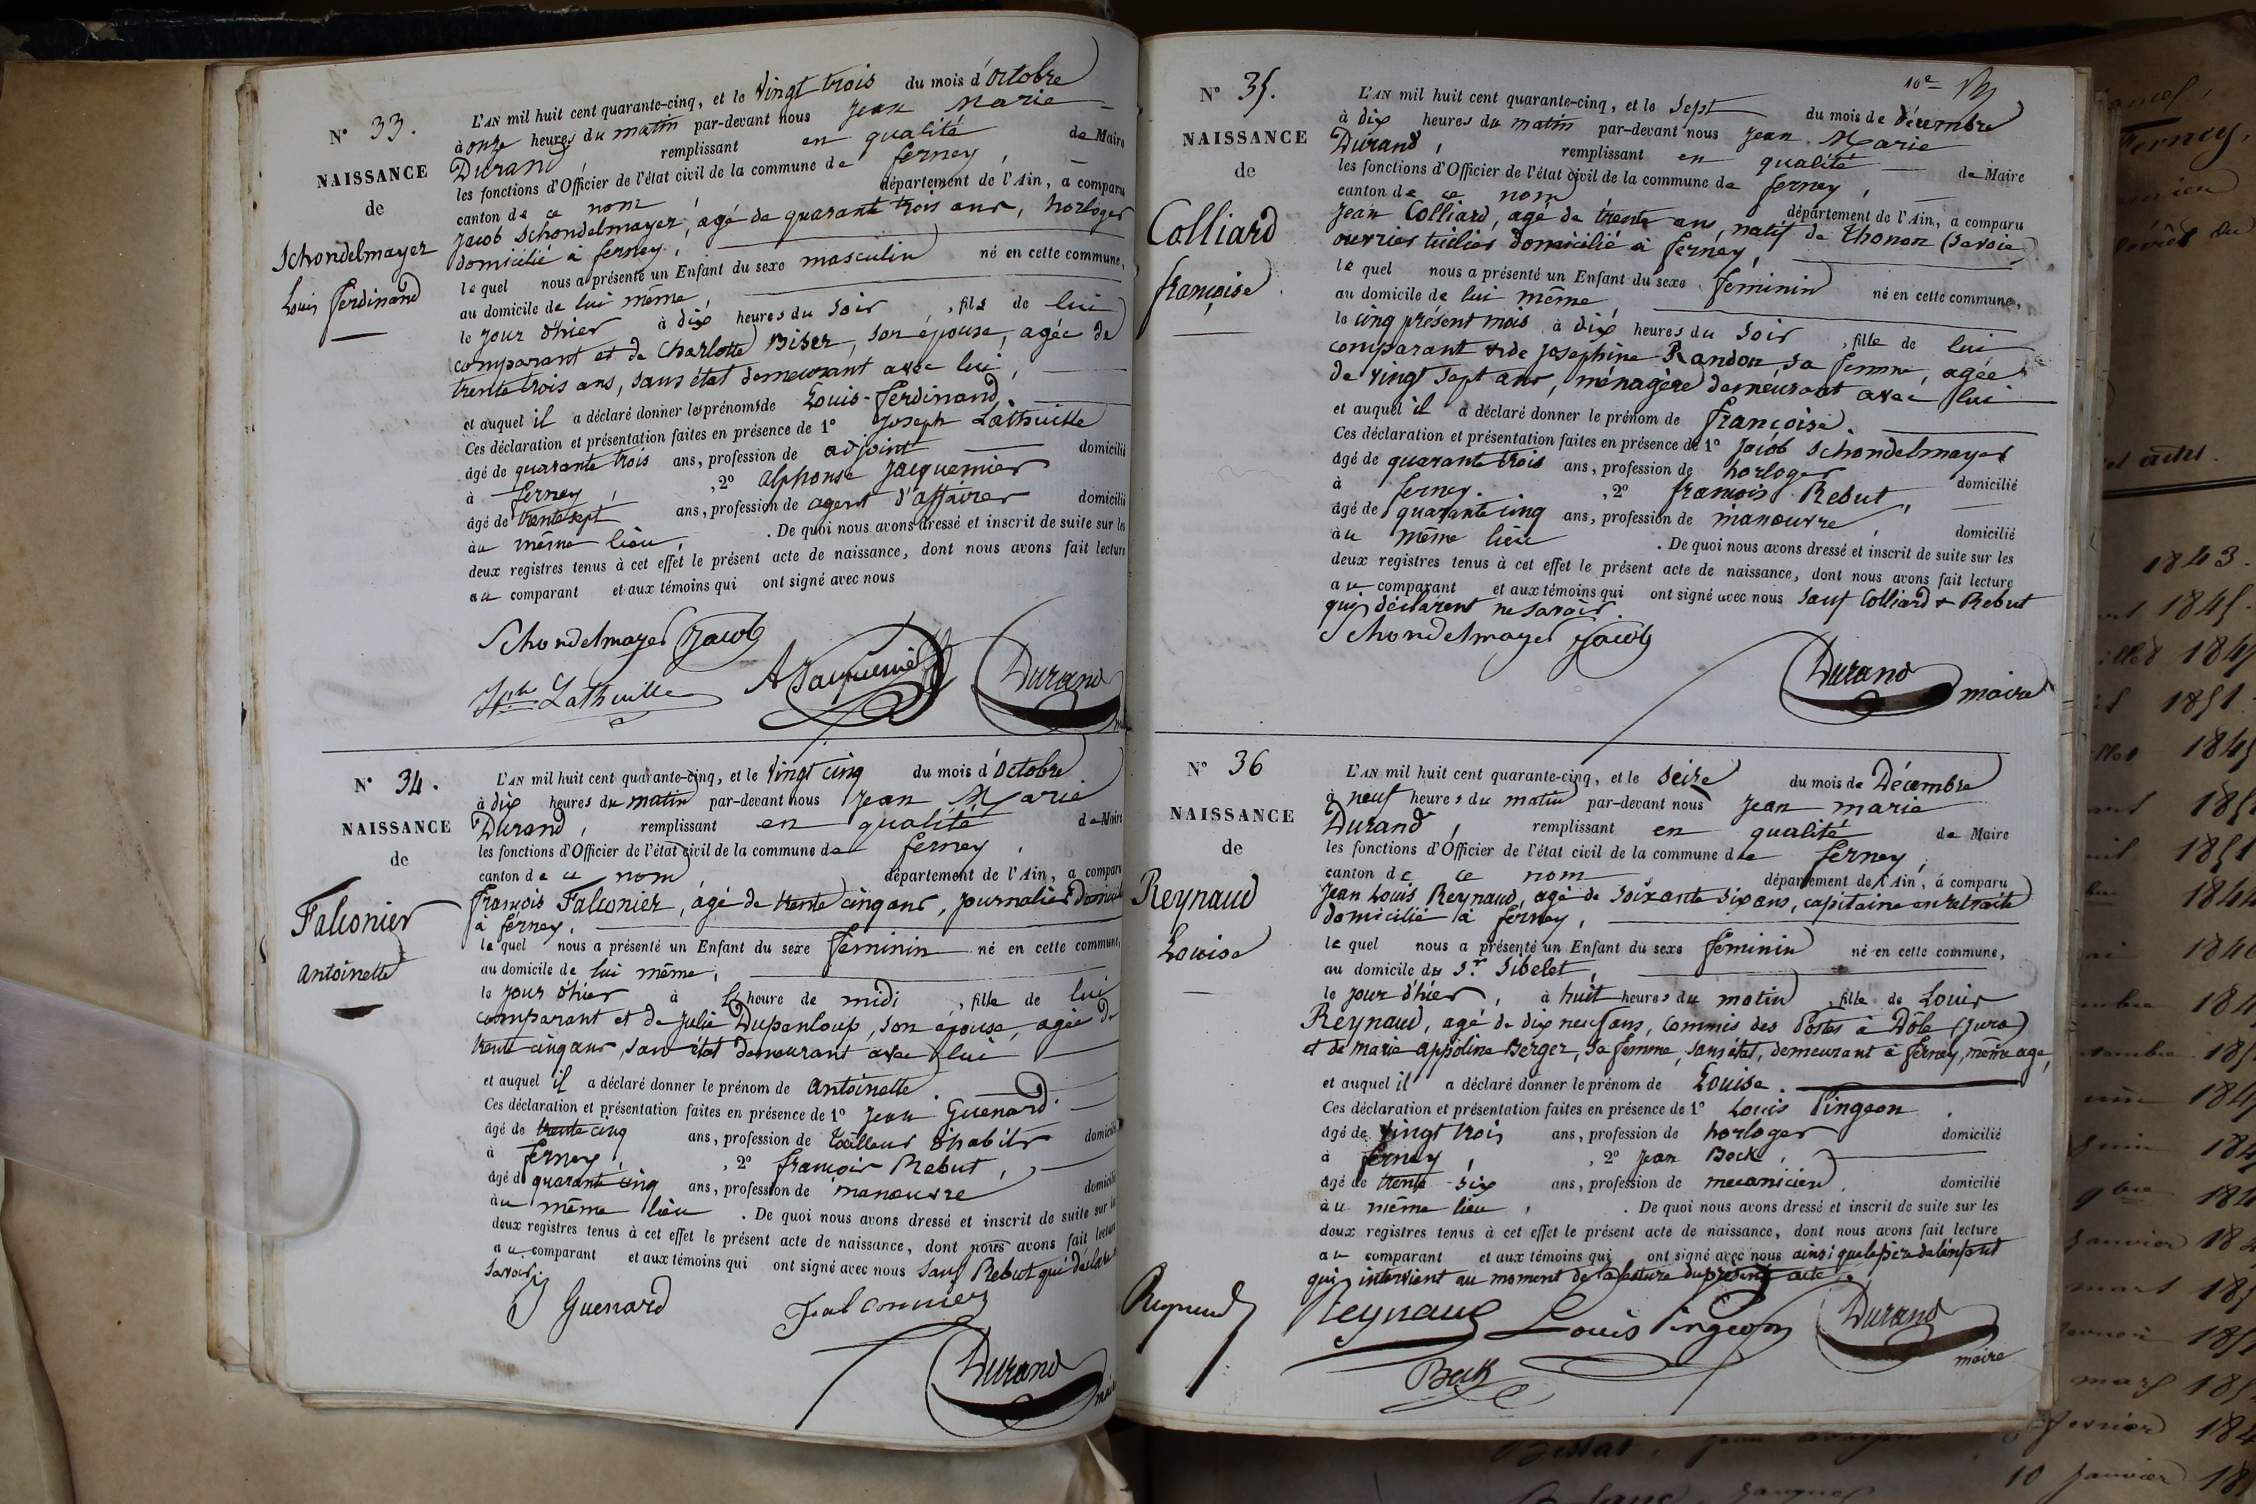 N° 33.
NAISSANCE
de
Schondelmayer
Louis Ferdinand
L'AN mil huit cent quarante-cinq, et le Vingt trois du mois d'Octobre
à onze heures du matin par-devant nous Jean Marie
Durand, remplissant en qualité de Maire
les fonctions d'Officier de l'état civil de la commune de ferney,
canton de ce nom département de l'Ain, a comparu
Jacob Schondelmayer, âgé de quarante trois ans, horloger
domicilié à ferney,
le quel nous a présenté un Enfant du sexe masculin né en cette commune,
au domicile de lui même,
le jour d'hier à dix heures du soir, fils de lui
comparant et de Charlotte Biser, son épouse, agée de
trente trois ans, sans état demeurant avec lui,
et auquel il a déclaré donner les prénoms de Louis-Ferdinand.
Ces déclaration et présentation faites en présence de 1° Joseph Lathuille
âgé de quarante trois ans, profession de adjoint domicilié
à ferney, , 2° alphonse Jacquemier
âgé de trente sept ans, profession de agent d'affaires domicilié
au même lieu, . De quoi nous avons dressé et inscrit de suite sur les
deux registres tenus à cet effet le présent acte de naissance, dont nous avons fait lecture
au comparant et aux témoins qui ont signé avec nous
Schondelmayer Jacob
Jph Lathuille A Jacquemier Durand
N° 34.
NAISSANCE
de
Falconier
antoinette
L'AN mil huit cent quarante-cinq, et le Vingt cinq du mois d'Octobre
à dix heures du matin par-devant nous Jean Marie
Durand, remplissant en qualité de Maire
les fonctions d'Officier de l'état civil de la commune de ferney,
canton de ce nom département de l'Ain, a comparu
françois Falconier, âgé de trente cinq ans, journalier domicilié
à ferney,
le quel nous a présenté un Enfant du sexe féminin né en cette commune,
au domicile de lui même,
le jour d'hier à l'heure de midi, fille de lui
comparant et de Julie Dupanloup, son épouse, agée de
trente cinq ans, sans état demeurant avec lui
et auquel il a déclaré donner le prénom de antoinette.
Ces déclaration et présentation faites en présence de 1° Jean Guenard.
âgé de trente cinq ans, profession de tailleur d'habits domicilié
à ferney, , 2° françois Rebut,
âgé de quarante cinq ans, profession de manoeuvre domicilié
au même lieu . De quoi nous avons dressé et inscrit de suite sur les
deux registres tenus à cet effet le présent acte de naissance, dont nous avons fait lecture
au comparant et aux témoins qui ont signé avec nous sauf Rebut qui déclare
savoir.
Guenard Falconnier
Durand
N° 35.
NAISSANCE
de
Colliard
françoise
10e
L'AN mil huit cent quarante-cinq, et le sept du mois de décembre
à dix heures du matin par-devant nous Jean Marie
Durand, remplissant en qualité de Maire
les fonctions d'Officier de l'état civil de la commune de ferney,
canton de ce nom département de l'Ain, a comparu
Jean Colliard, agé de trente ans, natif de Thonon (Savoie)
ouvrier tuilier domicilié à ferney,
le quel nous a présenté un Enfant du sexe féminin né en cette commune,
au domicile de lui même
le cinq présent mois à dix heures du soir, fille de lui
comparant & de Josephine Randon sa femme, agée
de vingt sept ans, ménagère demeurant avec lui
et auquel il a déclaré donner le prénom de françoise.
Ces déclaration et présentation faites en présence de 1° Jacob Schondelmayer
âgé de quarante trois ans, profession de horloger domicilié
à ferney. , 2° françois Rebut,
âgé de quarante cinq ans, profession de manoeuvre, domicilié
au même lieu . De quoi nous avons dressé et inscrit de suite sur les
deux registres tenus à cet effet le présent acte de naissance, dont nous avons fait lecture
au comparant et aux témoins qui ont signé avec nous sauf Colliard & Rebut
qui déclarent ne savoir
Schondelmayer Jacob
Durand maire
N° 36
NAISSANCE
de
Reynaud
Louise
L'AN mil huit cent quarante-cinq, et le seize du mois de Décembre
à neuf heures du matin par-devant nous Jean marie
Durand, remplissant en qualité de Maire
les fonctions d'Officier de l'état civil de la commune de ferney,
canton de ce nom département de l'Ain, a comparu
Jean Louis Reynaud, agé de soixante six ans, capitaine en retraite
domicilié à ferney,
le quel nous a présenté un Enfant du sexe féminin né en cette commune,
au domicile du Sr. Sibelet,
le jour d'hier, à huit heures du matin, fille de Louis
Reynaud, agé de dix neuf ans, Commis des Postes à Dôle (Jura)
et de marie appoline Berger, sa femme, sans état, demeurant à ferney, même age,
et auquel il a déclaré donner le prénom de Louise.
Ces déclaration et présentation faites en présence de 1° Louis Pingeon.
âgé de vingt trois ans, profession de horloger domicilié
à ferney, , 2° Jean Beck,
âgé de trente-six ans, profession de mecanicien, domicilié
au même lieu, . De quoi nous avons dressé et inscrit de suite sur les
deux registres tenus à cet effet le présent acte de naissance, dont nous avons fait lecture
au comparant et aux témoins qui ont signé avec nous ainsi que le père de l'enfant
qui intervient au moment de la lecture du présent acte.
Reynaud Reynaud Louis Pingeon Durand
Beck maire
Ferney,
1843.
1845.
1851
1845
1851
1844
10 Janvier